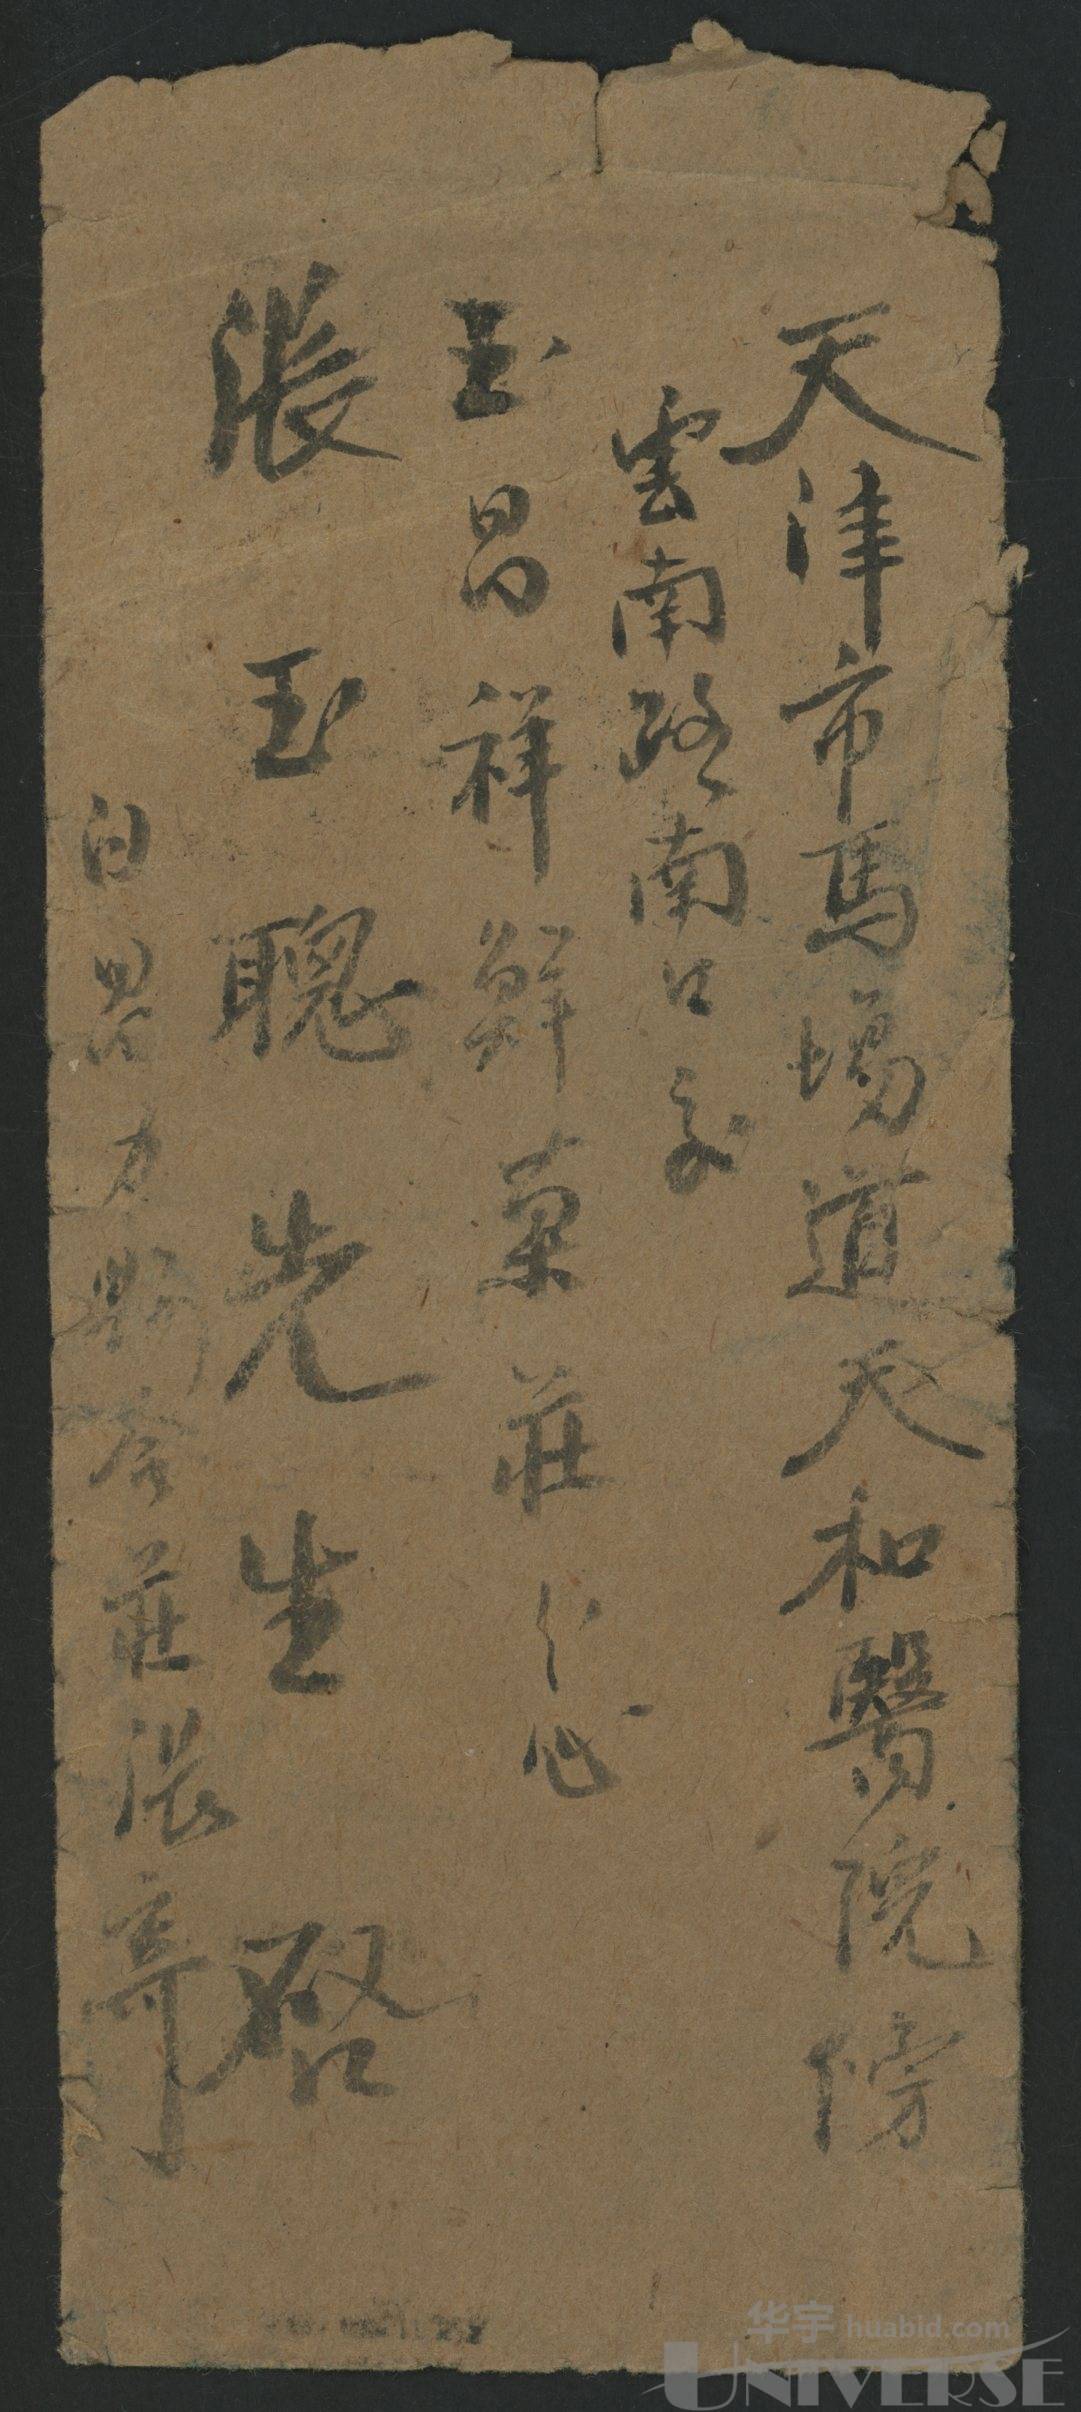 天津市馬場道天和醫院傍
雲南路南口交
玉昌祥鮮菓莊
張玉聰先生啓
莊張寄
华宇 huabid.com
UNIVERSE